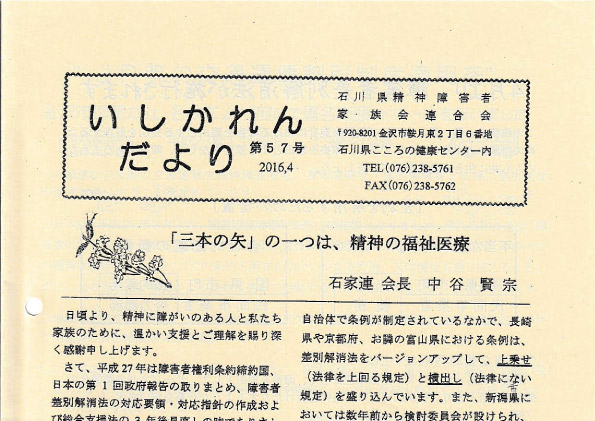 いしかれん
だより 第57号
2016,4
石川県精神障害者
家・族会連合会
〒920-8201 金沢市鞍月東2丁目6番地
石川県こころの健康センター内
TEL(076)238-5761
FAX(076)238-5762
「三本の矢」の一つは、精神の福祉医療
石家連 会長 中谷 賢宗
日頃より、精神に障がいのある人と私たち
家族のために、温かい支援とご理解を賜り深
く感謝申し上げます。
さて、平成27年は障害者権利条約締約国、
日本の第1回政府報告の取りまとめ、障害者
差別解消法の対応要領・対応指針の作成およ
び総合支援法の3年後見直しの時でありまし
自治体で条例が制定されているなかで、長崎
県や京都府、お隣の富山県における条例は、
差別解消法をバージョンアップして、上乗せ
(法律を上回る規定)と横出し(法律にない
規定)を盛り込んでいます。また、新潟県に
おいては数年前から検討委員会が設けられ、